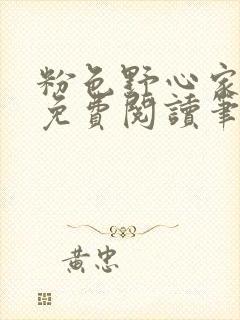 粉色野心家
免费閱讀筆
黃忠